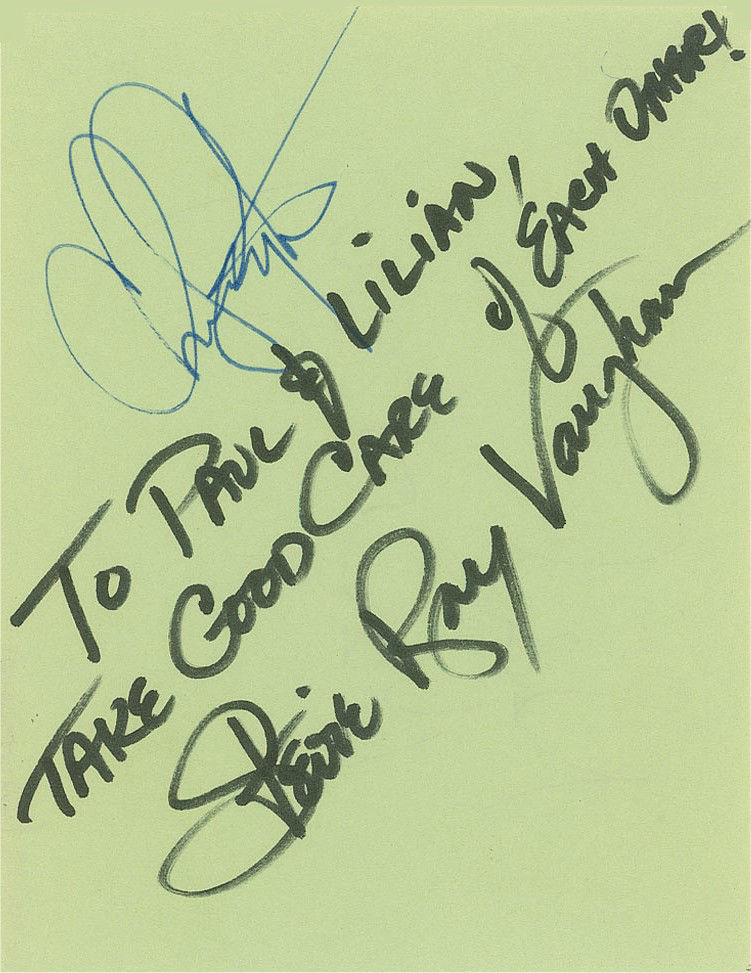 To PAUL & LILIAN,
TAKE GOOD CARE of EACH OTHER!
Stevie Ray Vaughan